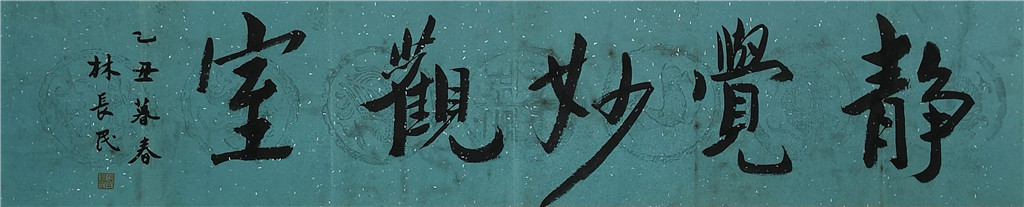 静覺妙觀室
乙丑暮春
林長民